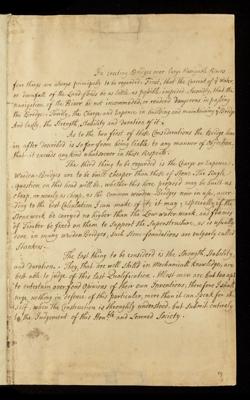 In erecting Bridges over large Navigable Rivers
few things are always principally to be regarded; First, that the Current of Water
or downfall of the Land floods be as little as possible impeded; Secondly, that the
navigation of the River be not incommoded, or rendred dangerous in passing
the Bridge; Thirdly, the Charge and Expence in building and maintaining the Bridge
And lastly, the Strength, Stability and duration of it.
As to the two first of these Considerations the Bridge here
in after described is so far from being liable to any manner of Objection,
that it excels any kind whatsoever in these Respects.
The third thing to be regarded is the Charge or Expence.
Wooden Bridges are to be built cheaper than those of Stone. The Single
question on this head will be, whether this now proposed may be built as
cheap, or nearly as cheap, as the common wooden Bridges now in use, accor-
ding to the best Calculation I can make of it; it may; especially if the
Stonework be carried no higher than the Low water mark, and frames
of Timber be fixed on them to Support the Superstructure, as is usually
done in many wooden Bridges, such Stone foundations are vulgarly called
Starlens.
The last thing to be considered is the Strength, Stability,
and duration. They, that are well Skilled in Mechanical Knowledge, are
best able to judge of this last Qualification. Most men are but too apt
to entertain over fond Opinions of their own Inventions, therefore I shall
urge nothing in defence of this particular, more than it can speak for it
Self, when the Construction is throughly understood, but submit entirely
to the Judgement of this Honble and Learned Society.